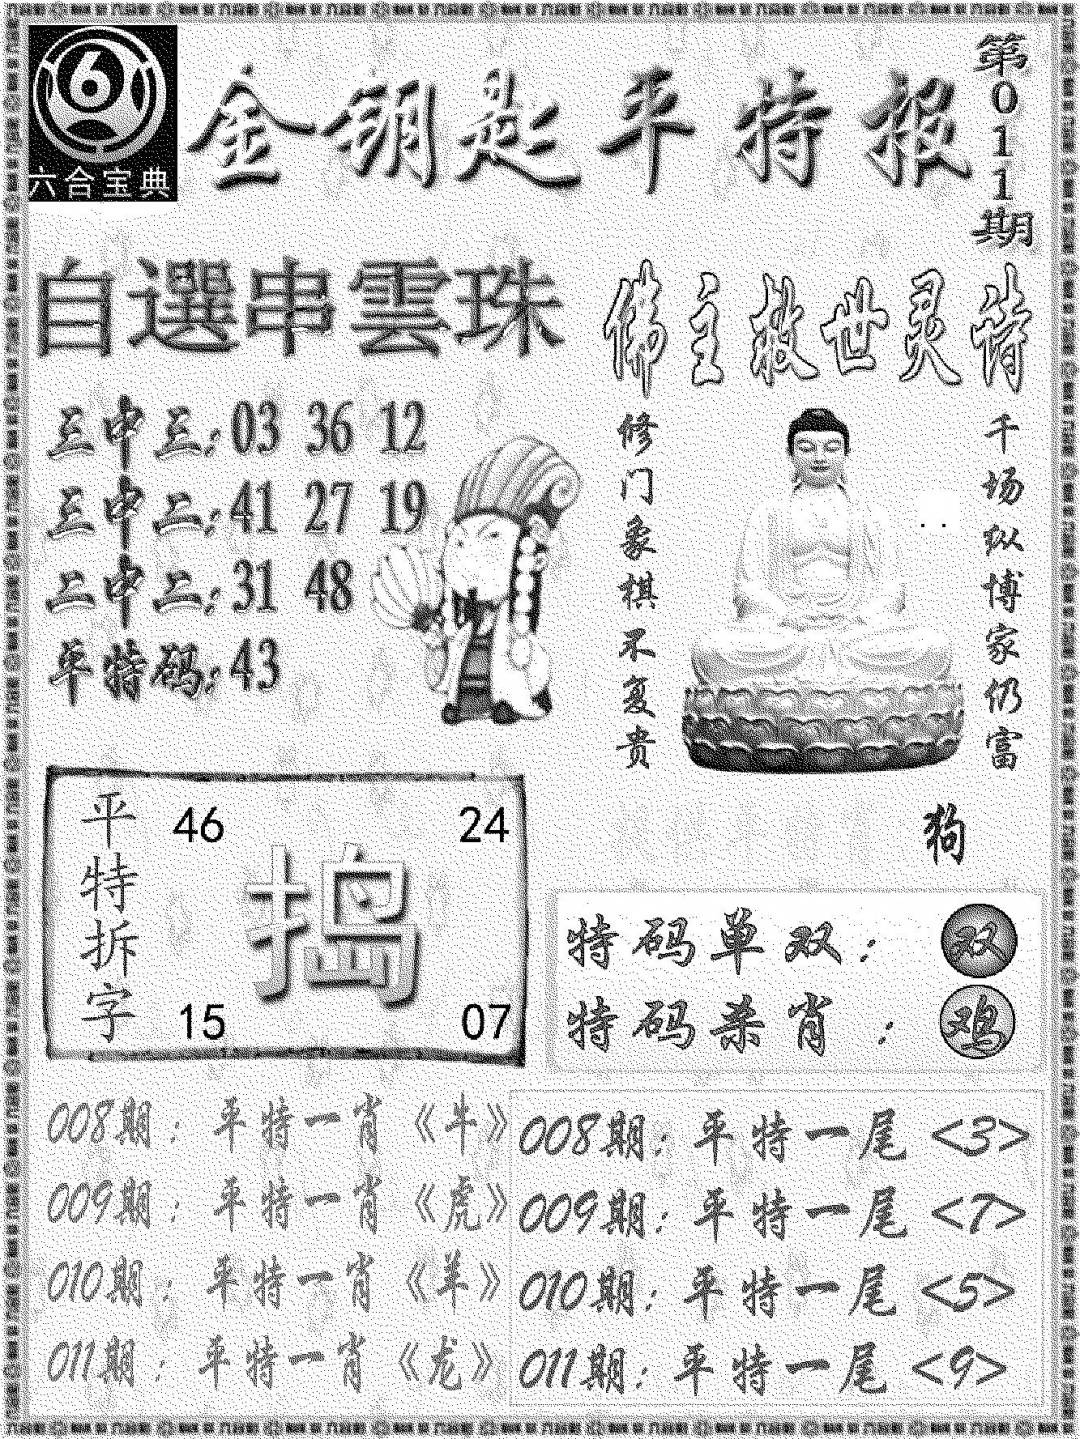 六合宝典
金钥匙平特报
第011期
自選串雲珠
三中三:03 36 12
三中二:41 27 19
二中二:31 48
平特码:43
佛主救世灵诗
修门象棋不复贵
千场纵博家仍富
狗
平特拆字
46 24
捣
15 07
特码单双：双
特码杀肖：鸡
008期：平特一肖《牛》
009期：平特一肖《虎》
010期：平特一肖《羊》
011期：平特一肖《龙》
008期：平特一尾<3>
009期：平特一尾<7>
010期：平特一尾<5>
011期：平特一尾<9>